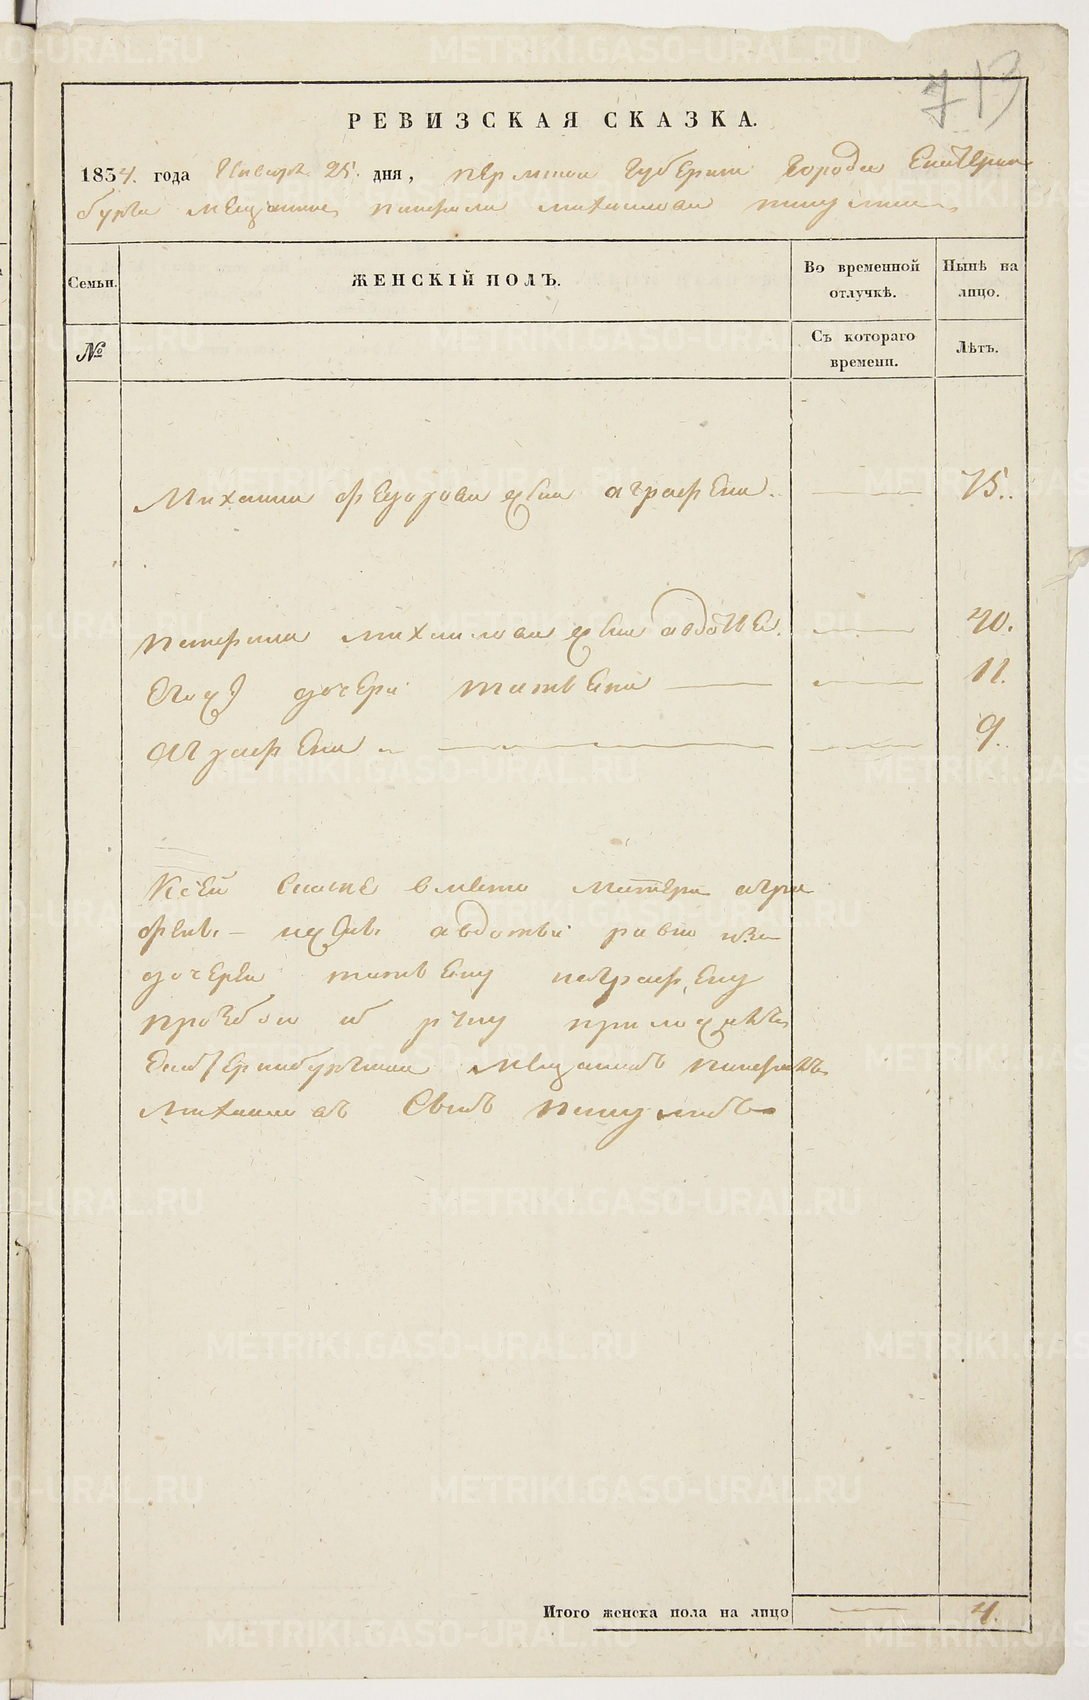 713
РЕВИЗСКАЯ СКАЗКА.
1834. года Генваря 25. дня, пермской губернии города Екатерин
бурга мещанина михаилова
Семьи. ЖЕНСКІЙ ПОЛЪ. Во временной отлучкѣ. Нынѣ на лицо.
№ Съ котораго времени. Лѣтъ.
Михаила федотова жена аграфена. 75.
михаилова жена авдотья. 40.
Оногож дочери татьяна 11.
Аграфена 9.
Ксей скаске вместо матери агра
фены - и жены авдотьи равно и за
дочерей татьяну и аграфену
прозбою их руку приложилъ
Екатеринбургской мещанинъ
Михаиловъ Сынъ
Итого женска пола на лицо 4.
METRIKI.GASO-URAL.RU